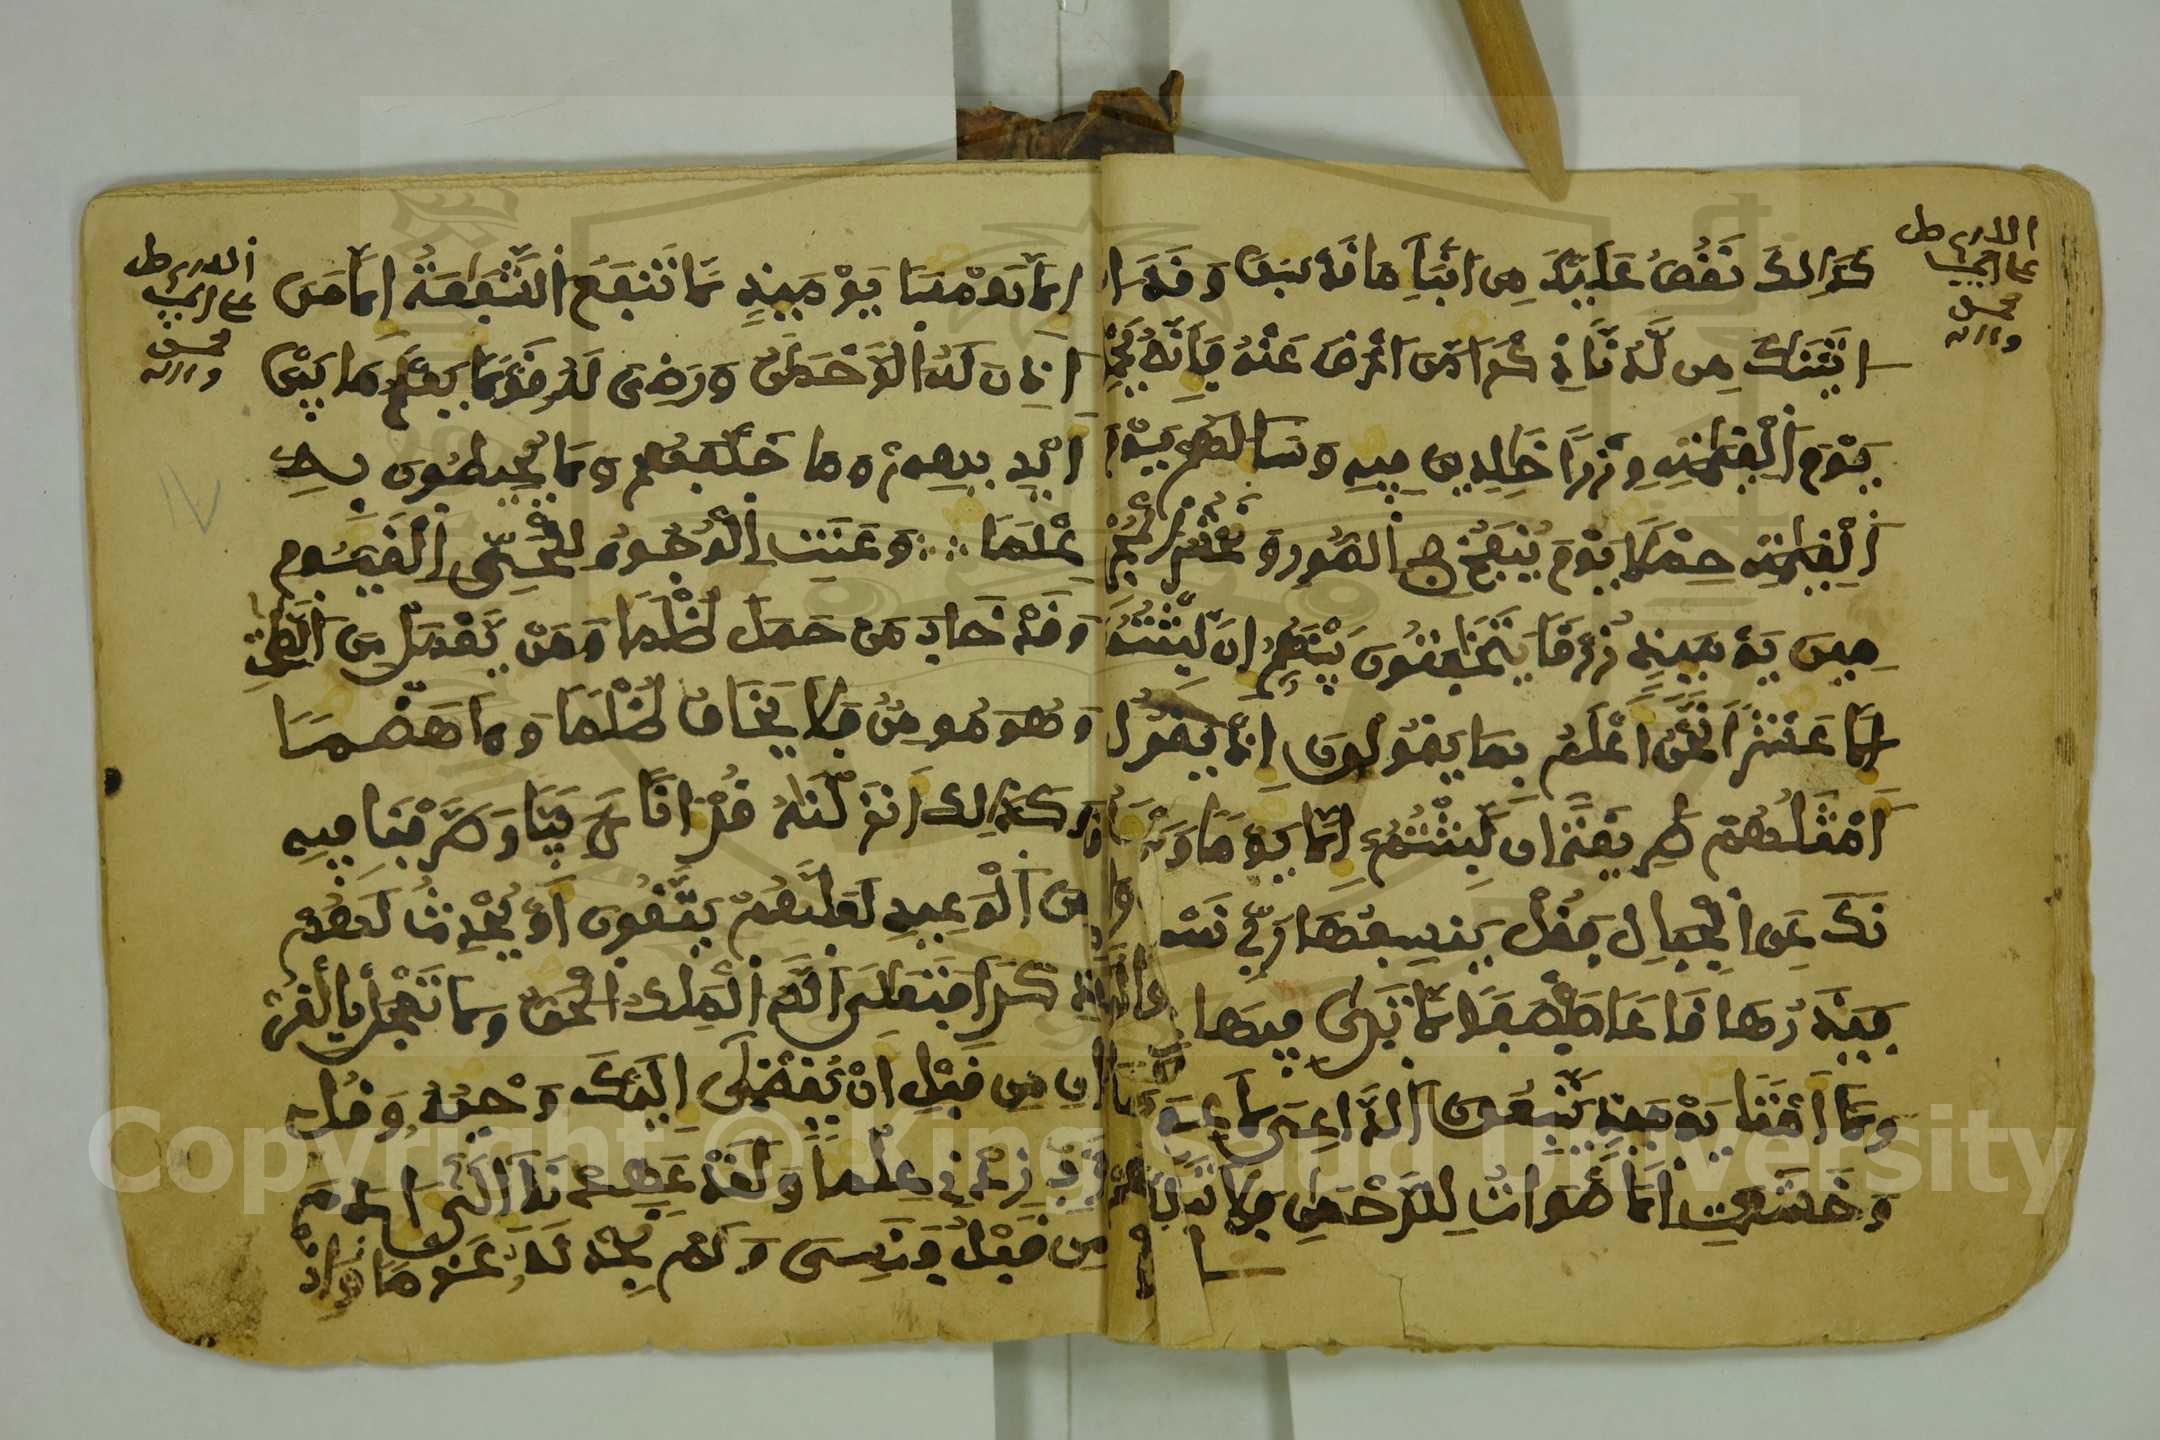 اللهم صل
على الحبيب
محمد
وااله
كذالك نقص عليك من انبا ما قد سبق وقد ا
اتينك من لدنا ذكرا من اعرض عنه فانه يح
يوم القيمة وزرا خالدين فيه وسا لهم يوم
القيمة حملا يوم ينفخ في الصور ونحشر المجر
مين يومئذ زرقا يتخفتون بينهم ان لبثتم
الا عشرا نحن اعلم بما يقولون اذ يقول
امثلهم طريقة ان لبثتم الا يوما ويس
نك عن الجبال فقل ينسفها ربي نسفا
فيذرها قاعا صفصفا لا ترى فيها
ولا امتا يومئذ يتبعون الداعي لا عو
وخشعت الاصوات للرحمن فلا تسمع
الا
اللهم صل
على الحبيب
محمد
وااله
الا همسا يومئذ لا تنفع الشفعة الا من
اذن له الرحمن ورضي له قولا يعلم ما بين
ايديهم وما خلفهم ولا يحيطون به
علما وعنت الوجوه للحي القيوم
وقد خاب من حمل ظلما ومن يعمل من الصلح
وهو مومن فلا يخاف ظلما ولا هضما
وكذالك انزلنه قرانا عربيا وصرفنا فيه
من الوعيد لعلهم يتقون او يحدث لهم
ذكرا فتعلى الله الملك الحق ولا تعجل بالقر
ان من قبل ان يقضى اليك وحيه وقل
رب زدني علما ولقد عهدنا الى ادم
من قبل فنسي ولم نجد له عزما واذ
IV
Copyright © King Saud University